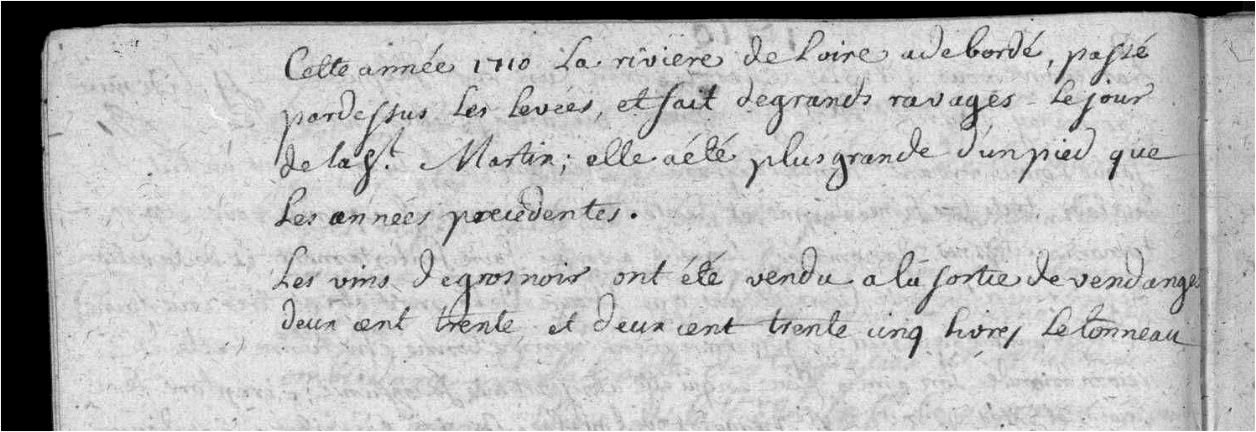 Cette année 1710 La riviere de Loire a debordé, passé
pardessus Les Levées, et fait de grands ravages Le jour
de la St. Martin; elle a été plus grande d'un pied que
Les années precedentes.
Les vins de gros noir ont été vendu a la sortie de vendanges
deux cent trente et deux cent trente cinq livres Le tonneau